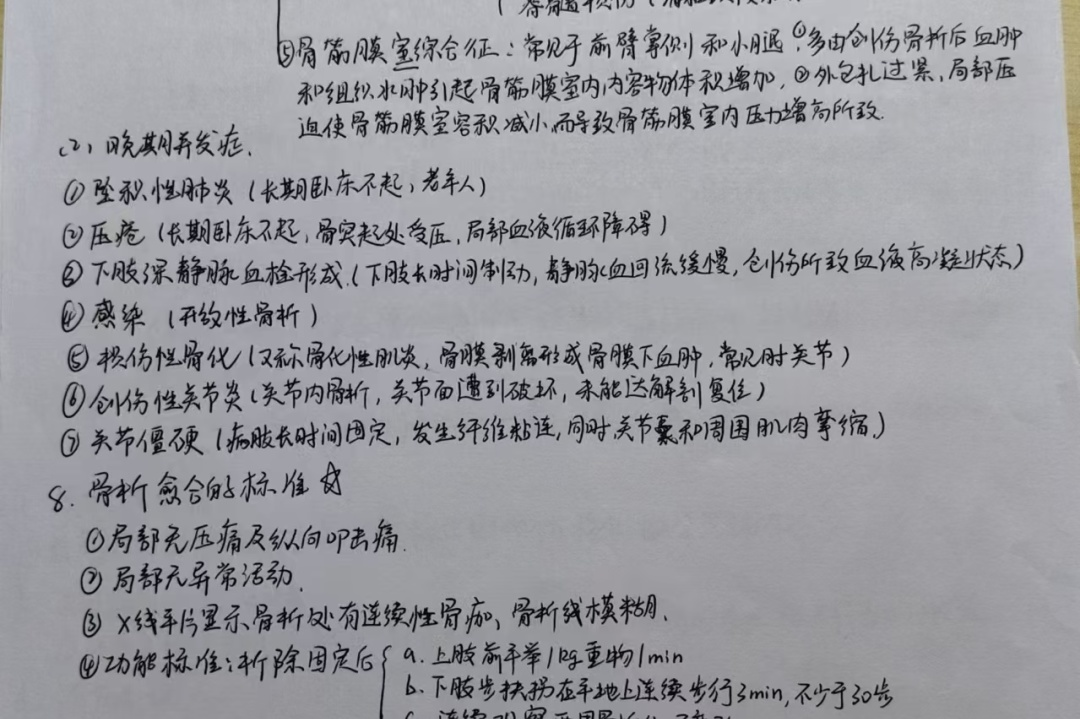 脊髓损伤
⑤骨筋膜室综合征：常见于前臂掌侧和小腿，①多由创伤骨折后血肿
和组织水肿引起骨筋膜室内内容物体积增加，②外包扎过紧，局部压
迫使骨筋膜室容积减小而导致骨筋膜室内压力增高所致.
(2) 晚期并发症.
①坠积性肺炎（长期卧床不起，老年人）
②压疮（长期卧床不起，骨突起处受压，局部血液循环障碍）
③下肢深静脉血栓形成.（下肢长时间制动，静脉血回流缓慢，创伤所致血液高凝状态）
④感染（开放性骨折）
⑤损伤性骨化（又称骨化性肌炎，骨膜剥离形成骨膜下血肿，常见肘关节）
⑥创伤性关节炎（关节内骨折，关节面遭到破坏，未能达解剖复位）
⑦关节僵硬（病肢长时间固定，发生纤维粘连，同时关节囊和周围肌肉挛缩.）
8. 骨折愈合的标准☆
①局部无压痛及纵向叩击痛.
②局部无异常活动.
③X线平片显示骨折处有连续性骨痂，骨折线模糊.
④功能标准：折除固定后
a. 上肢前平举1kg重物1min
b. 下肢步扶拐在平地上连续步行3min，不少于30步
c. 连续观察